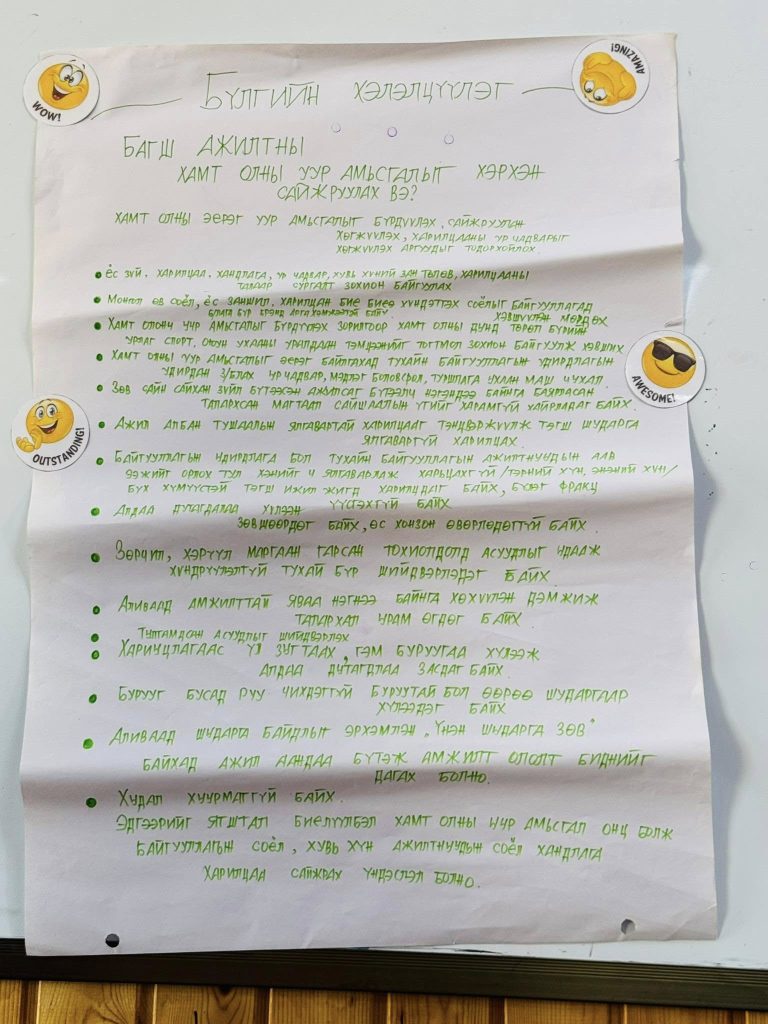 WOW!
AMAZING!
Бүлгийн хэлэлцүүлэг
Багш ажилтны
хамт олны уур амьсгалыг хэрхэн
сайжруулах вэ?
Хамт олны эерэг уур амьсгалыг бүрдүүлэх, сайжруулан
хөгжүүлэх, харилцааны ур чадварыг
хөгжүүлэх аргуудыг тодорхойлох.
• Ёс зүй. харилцаа. хандлага, ур чадвар, хувь хүний зан төлөв, харилцааны
талаар сургалт зохион байгуулах
• Монгол өв соёл, ёс заншил. харилцан бие биеэ хүндэтгэх соёлыг байгууллагад
бүр арга хэмжээлүй байх хэвшүүлэн мөрдөх
• Хамт олонч уур амьсгалыг бүрдүүлэх зорилгоор хамт олны дунд төрөл бүрийн
урлаг спорт, оюун ухааны уралдаан тэмцээнийг тогтмол зохион байгуулж хэвших
• Хамт олны уур амьсгалыг эерэг байлгахад тухайн байгууллагын удирдлагын
удирдан з/блах ур чадвар, мэдлэг боловсрол, туршлага ухаан маш чухал
• Зөв сайн сайхан зүйл бүтээсэн ажилсаг бүтээлч нэгэндээ байнга баярласан
талархсан магтаал сайшаалын үгийг харамгүй хайрладаг байх
AWESOME!
OUTSTANDING!
• Ажил албан тушаалын ялгавартай харилцааг тэнцвэржүүлж тэгш шударга
ялгаваргүй харилцах.
• Байгууллагын удирдлага бол тухайн байгууллагын ажилтнуудын аав
ээжийг орлох тул хэнийг ч ялгаварлаж харьцахгүй /тэрний хүн, энэний хүн/
бүх хүмүүстэй тэгш ижил жигд харилцдаг байх, бүлэг фракц
үүсгэхгүй байх
• Алдаа дутагдалаа хүлээн
зөвшөөрдөг байх, өс хонзон өвөрлөдөггүй байх
• Зөрчил, хэрүүл маргаан гарсан тохиолдолд асуудлыг удааж
хүндрүүлэлгүй тухай бүр шийдвэрлэдэг байх
• Аливаад амжилттай яваа нэгнээ байнга хөхүүлэн дэмжиж
талархал урам өгдөг байх
• Тулгамдсан асуудлыг шийдвэрлэх
• Хариуцлагаас үл зугтаах, гэм буруугаа хүлээж
алдаа дутагдлаа засдаг байх
• Бурууг бусад руу чихдэггүй буруутай бол өөрөө шударгаар
хүлээдэг байх
• Аливаад шударга байдлыг эрхэмлэн „Үнэн шударга зөв"
байхад ажил аандаа бүтэж амжилт ололт биднийг
дагах болно.
• Худал хуурмаггүй байх.
Эдгээрийг ягштал биелүүлбэл хамт олны уур амьсгал онц болж
байгууллагын соёл, хувь хүн ажилтнуудын соёл хандлага
харилцаа сайжрах үндэслэл болно.